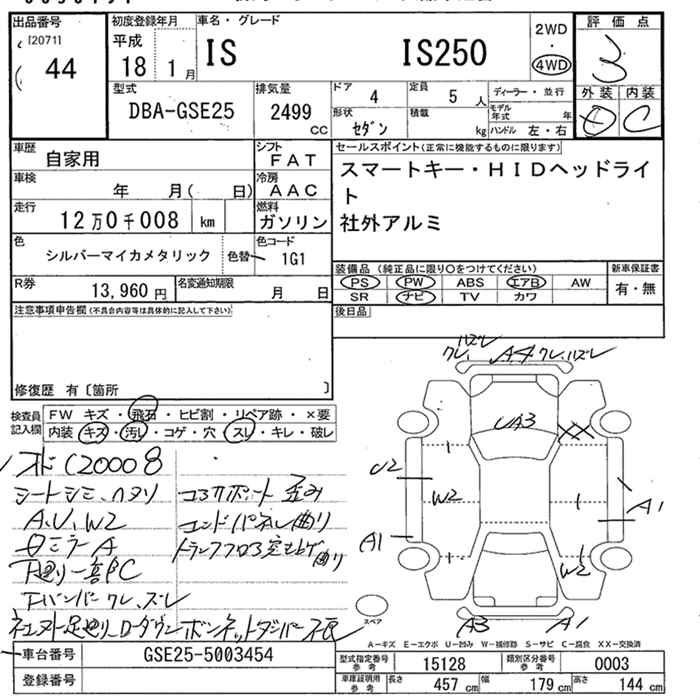 出品番号
[2071]
44
初度登録年月
平成
18 1月
車名・グレード
IS IS250
2WD
・
4WD
評価点
3
外装 内装
D C
型式
DBA-GSE25
排気量
2499
CC
ドア 4
定員 5 人
形状 セダン
積載 kg
ディーラー・並行
モデル年式 年
ハンドル 左・右
車歴
自家用
シフト
FAT
車検
年 月( 日)
冷房
AAC
走行
12万0千008 km
燃料
ガソリン
色
シルバーマイカメタリック
色替
色コード
1G1
R券
13,960 円
名変通知期限
月 日
セールスポイント(正常に機能するものに限ります)
スマートキー・HIDヘッドライ
ト
社外アルミ
装備品 (純正品に限り〇をつけてください)
PS PW ABS エアB AW
SR ナビ TV カワ
新車保証書
有・無
後日品
注意事項申告欄(不具合内容等は具体的に記入して下さい)
修復歴 有〔箇所 〕
検査員
記入欄
FW キズ・飛石・ヒビ割・リペア跡・×要
内装 キズ・汚レ・コゲ・穴・スレ・キレ・破レ
シートシミ、ヘタリ
A、U、W2
ロミラーA
下廻り一部C
下バンパーワレ、ズレ
コアサポート歪み
エンドパネル曲り
ワレ、ハズレ
A4
ワレ、ハズレ
UA3
XX
U2
W2
A1
A1
W2
A3
A1
スペア
A-キズ E-エクボ U-凹み W-補修跡 S-サビ C-腐食 XX-交換済
車台番号
GSE25-5003454
登録番号
型式指定番号
参考
15128
類別区分番号
参考
0003
車庫証明用
参考
長さ 457 cm
幅 179 cm
高さ 144 cm